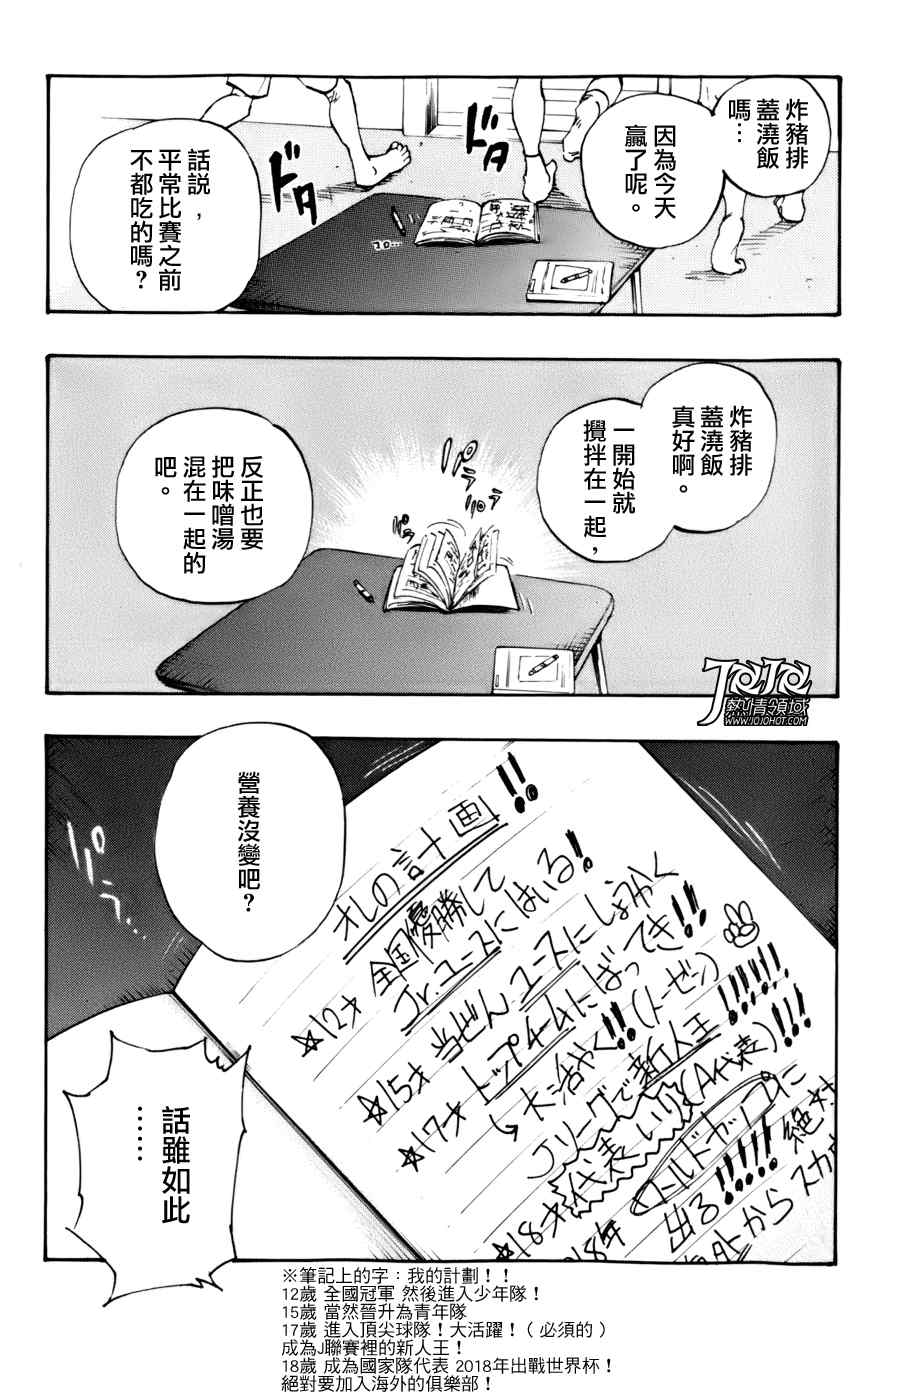 炸豬排
蓋澆飯
嗎…
因為今天
贏了呢。
話説，
平常比賽之前
不都吃的嗎？
ドタ
ドタ
コロ…
炸豬排
蓋澆飯
真好啊。
一開始就
攪拌在一起，
反正也要
把味噌湯
混在一起的
吧。
パラパラ
JOJO
熱情領域
WWW.JOJOHOT.COM
營養沒
變吧？
パラ
オレの計画!!
☆12才 全国優勝して
Jr.ユースにはいる!
☆15才 当ぜんユースにしょうかく
☆17才 トップチームにばってき!!
大活やく!!(トーゼン)
Jリーグで新人王!!!!!!
☆18才 代表いり(A代表)!!!
18年 ワールドカップに
出る!!!!! 絶対
からスカウ
話雖如此
……
※筆記上的字：我的計劃！！
12歲 全國冠軍 然後進入少年隊！
15歲 當然晉升為青年隊
17歲 進入頂尖球隊！大活躍！（必須的）
成為J聯賽裡的新人王！
18歲 成為國家隊代表 2018年出戰世界杯！
絕對要加入海外的俱樂部！